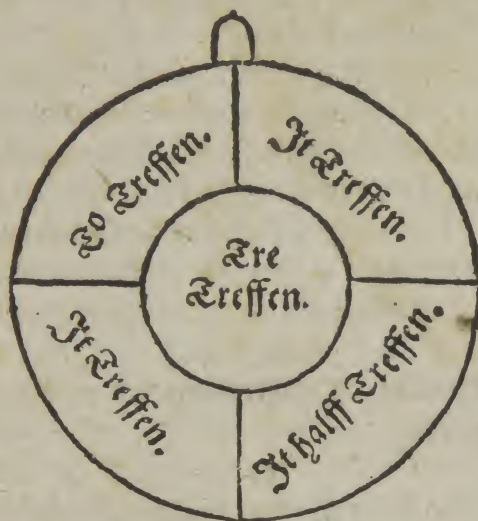 To Treffen.
It Treffen.
Tre
Treffen.
It Treffen.
It halff Treffen.